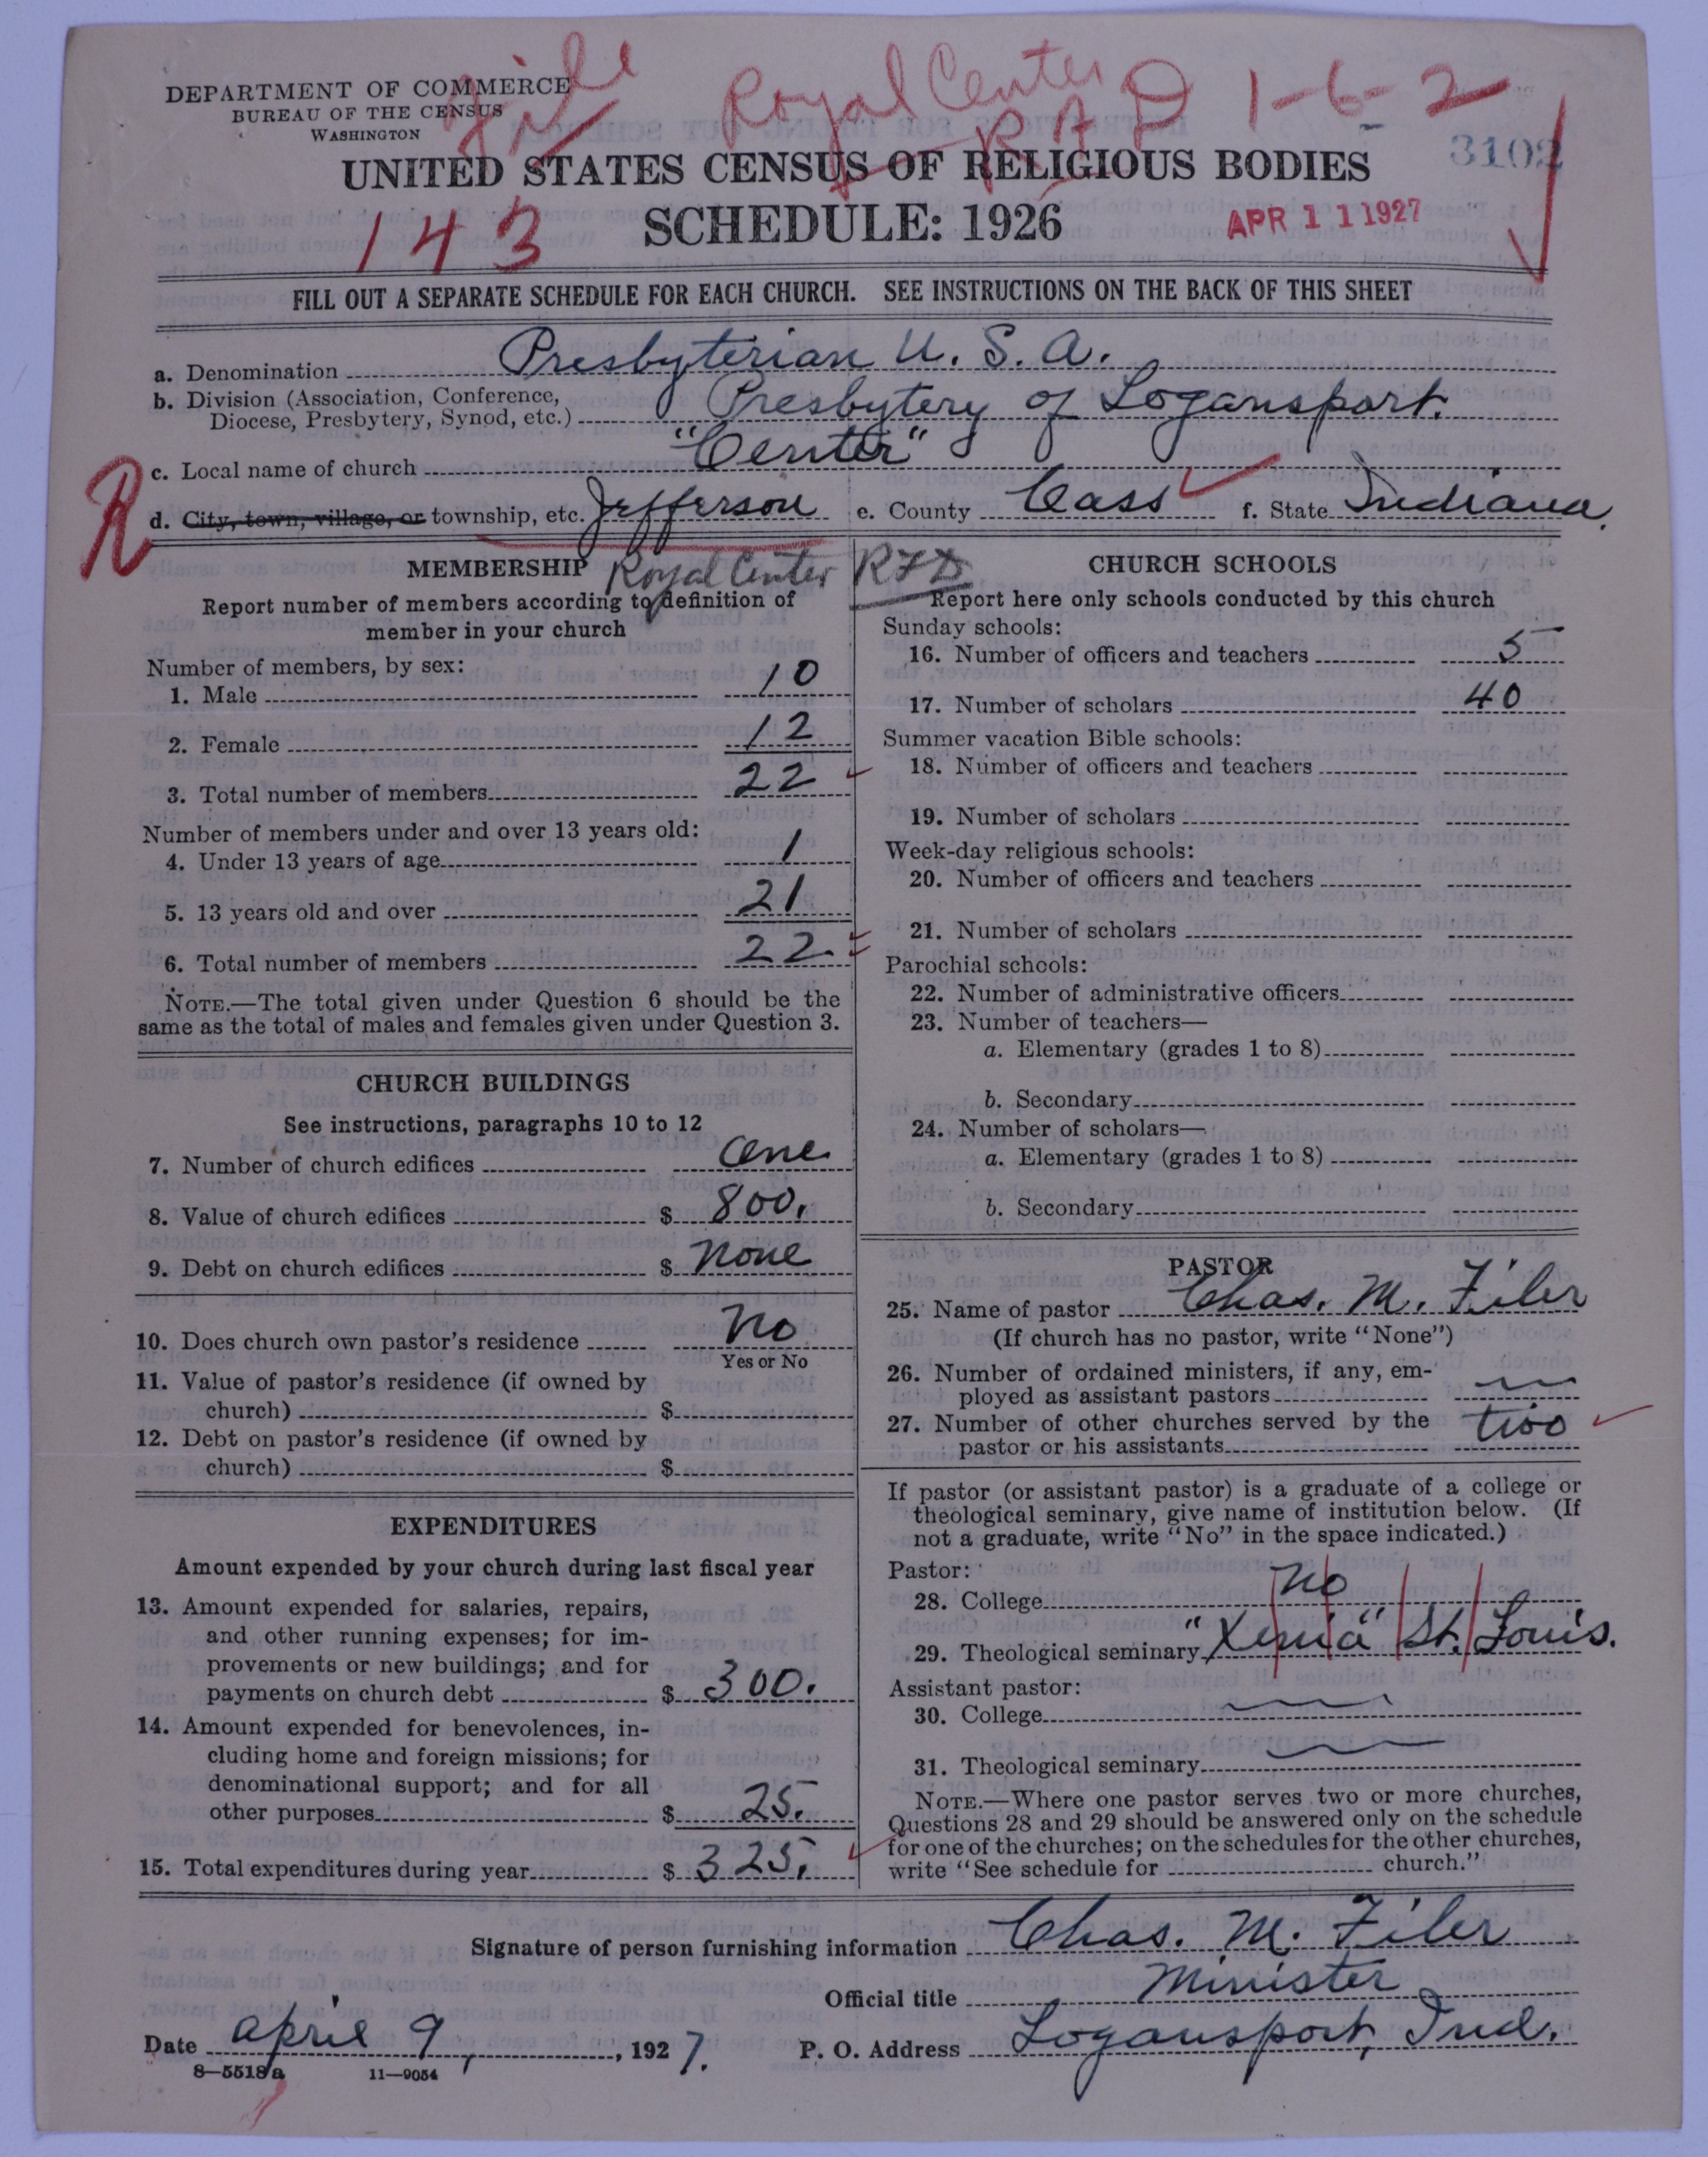 File Royal Center 1-6-2
DEPARTMENT OF COMMERCE
BUREAU OF THE CENSUS
WASHINGTON
3102
UNITED STATES CENSUS OF RELIGIOUS BODIES
143
SCHEDULE: 1926
APR 11 1927
FILL OUT A SEPARATE SCHEDULE FOR EACH CHURCH. SEE INSTRUCTIONS ON THE BACK OF THIS SHEET
a. Denomination Presbyterian U. S. A.
b. Division (Association, Conference,
Diocese, Presbytery, Synod, etc.) Presbytery of Logansport.
c. Local name of church "Center"
R
d. City, town, village, or township, etc. Jefferson e. County Cass f. State Indiana.
Royal Center RFD
MEMBERSHIP
Report number of members according to definition of
member in your church
Number of members, by sex:
1. Male 10
2. Female 12
3. Total number of members 22
Number of members under and over 13 years old:
4. Under 13 years of age 1
5. 13 years old and over 21
6. Total number of members 22
NOTE.—The total given under Question 6 should be the
same as the total of males and females given under Question 3.
CHURCH BUILDINGS
See instructions, paragraphs 10 to 12
7. Number of church edifices One
8. Value of church edifices $ 800.
9. Debt on church edifices $ None
10. Does church own pastor's residence No
Yes or No
11. Value of pastor's residence (if owned by
church) $
12. Debt on pastor's residence (if owned by
church) $
EXPENDITURES
Amount expended by your church during last fiscal year
13. Amount expended for salaries, repairs,
and other running expenses; for im-
provements or new buildings; and for
payments on church debt $ 300.
14. Amount expended for benevolences, in-
cluding home and foreign missions; for
denominational support; and for all
other purposes $ 25.
15. Total expenditures during year $ 325.
CHURCH SCHOOLS
Report here only schools conducted by this church
Sunday schools:
16. Number of officers and teachers 5
17. Number of scholars 40
Summer vacation Bible schools:
18. Number of officers and teachers
19. Number of scholars
Week-day religious schools:
20. Number of officers and teachers
21. Number of scholars
Parochial schools:
22. Number of administrative officers
23. Number of teachers—
a. Elementary (grades 1 to 8)
b. Secondary
24. Number of scholars—
a. Elementary (grades 1 to 8)
b. Secondary
PASTOR
25. Name of pastor Chas. M. Filer
(If church has no pastor, write "None")
26. Number of ordained ministers, if any, em-
ployed as assistant pastors
27. Number of other churches served by the two
pastor or his assistants
If pastor (or assistant pastor) is a graduate of a college or
theological seminary, give name of institution below. (If
not a graduate, write "No" in the space indicated.)
Pastor:
28. College No
29. Theological seminary "Xenia" St. Louis.
Assistant pastor:
30. College
31. Theological seminary
NOTE.—Where one pastor serves two or more churches,
Questions 28 and 29 should be answered only on the schedule
for one of the churches; on the schedules for the other churches,
write "See schedule for church."
Signature of person furnishing information Chas. M. Filer
Official title Minister
Date April 9, 1927. P. O. Address Logansport, Ind.
8—5518a 11—9054